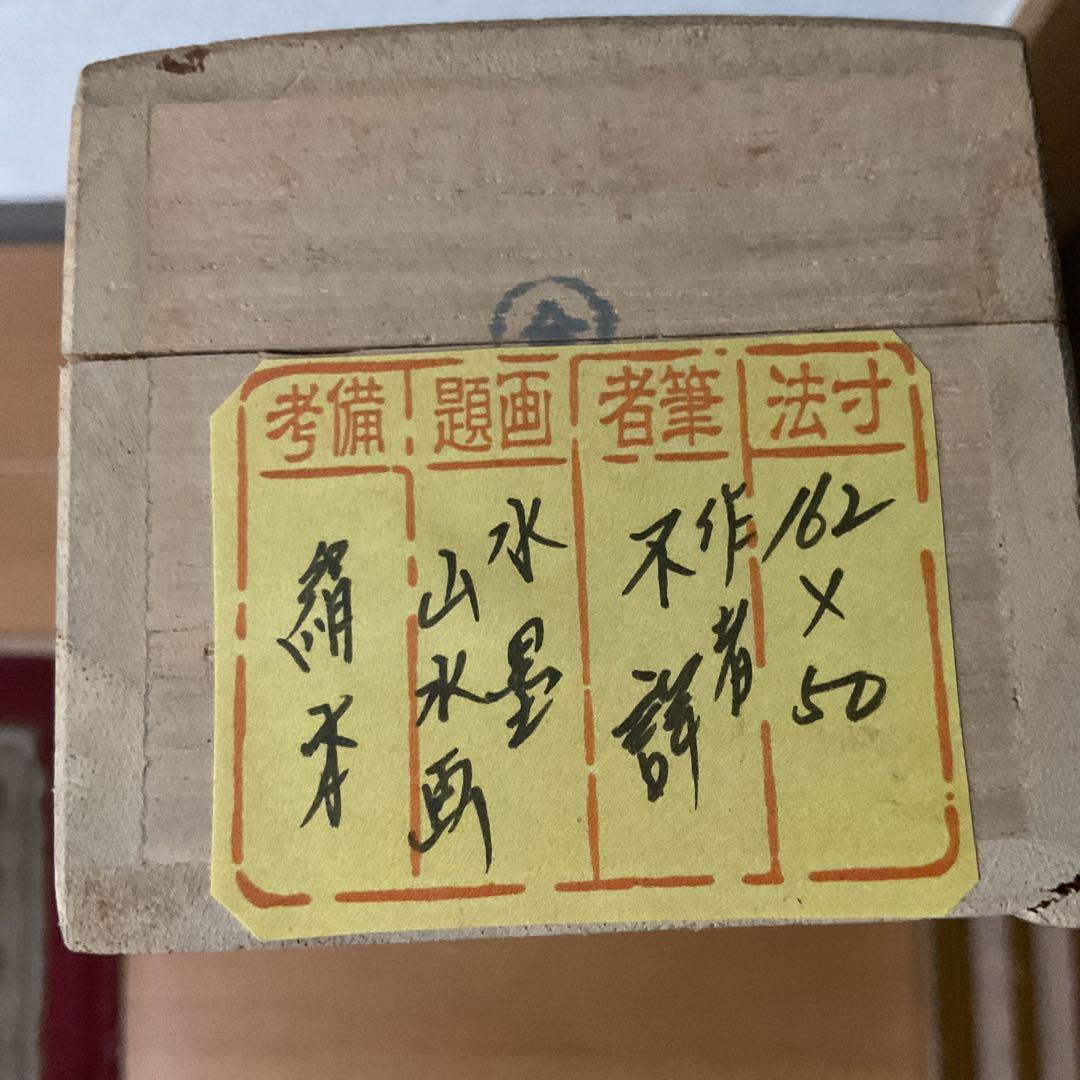 寸法
162
×
50
筆者
作者
不詳
画題
水墨
山水画
備考
絹本